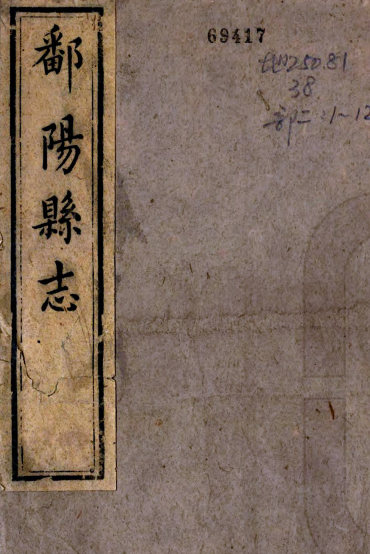 鄱陽縣志
69417
地250.81
38
部二:1~12